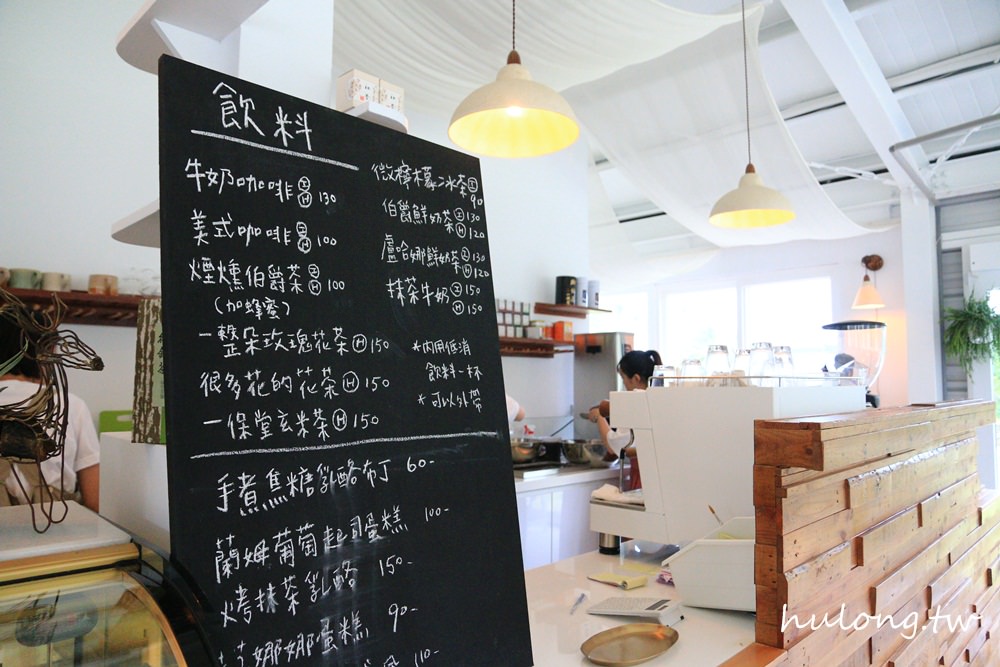 飲料
牛奶咖啡 I H 130
美式咖啡 I H 100
煙燻伯爵茶 I H 100
(加蜂蜜)
一整朵玫瑰花茶 H 150
很多花的花茶 H 150
一保堂玄米茶 H 150
微檸檬冰茶 I 90
伯爵鮮奶茶 I 130
H 120
盧哈娜鮮奶茶 I 130
H 120
抹茶牛奶 I 150
H 150
*內用低消
飲料一杯
*可以外帶
手煮焦糖乳酪布丁 60-
蘭姆葡萄起司蛋糕 100-
烤抹茶乳酪 150-
娜娜蛋糕 90-
110-
hulong.tw